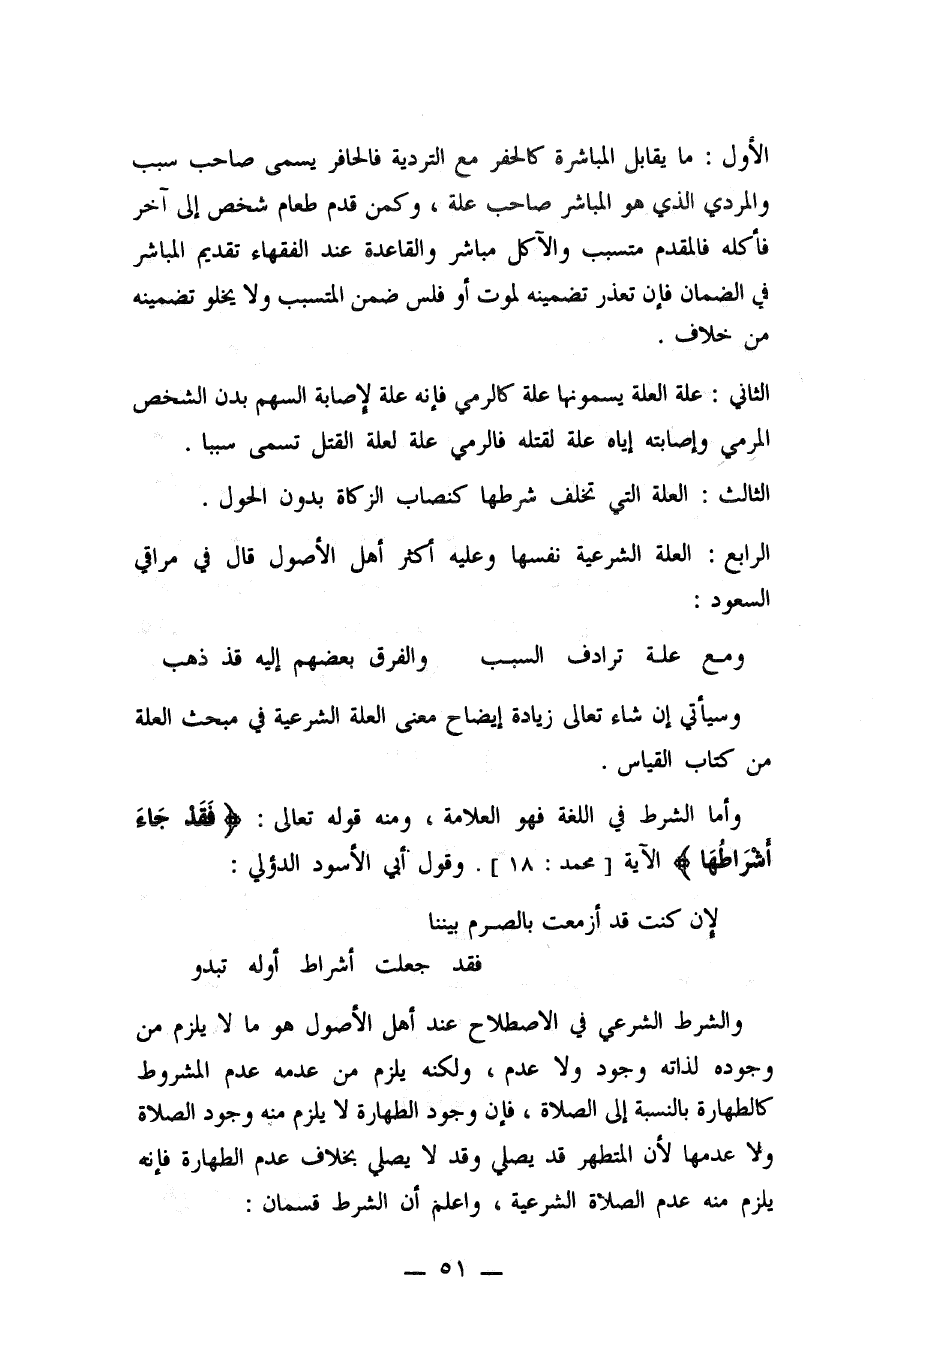 الأول : ما يقابل المباشرة كالحفر مع التردية فالحافر يسمى صاحب سبب
والمردي الذي هو المباشر صاحب علة ، وكمن قدم طعام شخص إلى آخر
فأكله فالمقدم متسبب والآكل مباشر والقاعدة عند الفقهاء تقديم المباشر
في الضمان فإن تعذر تضمينه لموت أو فلس ضمن المتسبب ولا يخلو تضمينه
من خلاف .
الثاني : علة العلة يسمونها علة كالرمي فإنه علة لإصابة السهم بدن الشخص
المرمي وإصابته إياه علة لقتله فالرمي علة لعلة القتل تسمى سببا .
الثالث : العلة التي تخلف شرطها كنصاب الزكاة بدون الحول .
الرابع : العلة الشرعية نفسها وعليه أكثر أهل الأصول قال في مراقي
السعود :
ومـع علـة ترادف السبـب والفرق بعضهم إليه قذ ذهب
وسيأتي إن شاء تعالى زيادة إيضاح معنى العلة الشرعية في مبحث العلة
من كتاب القياس .
وأما الشرط في اللغة فهو العلامة ، ومنه قوله تعالى : ﴿ فَقَدْ جَاءَ
أَشْرَاطُهَا ﴾ الآية [ محمد : ١٨ ] . وقول أبي الأسود الدؤلي :
لإن كنت قد أزمعت بالصـرم بيننا
فقد جعلت أشراط أوله تبدو
والشرط الشرعي في الاصطلاح عند أهل الأصول هو ما لا يلزم من
وجوده لذاته وجود ولا عدم ، ولكنه يلزم من عدمه عدم المشروط
كالطهارة بالنسبة إلى الصلاة ، فإن وجود الطهارة لا يلزم منه وجود الصلاة
ولا عدمها لأن المتطهر قد يصلي وقد لا يصلي بخلاف عدم الطهارة فإنه
يلزم منه عدم الصلاة الشرعية ، واعلم أن الشرط قسمان :
— ٥١ —